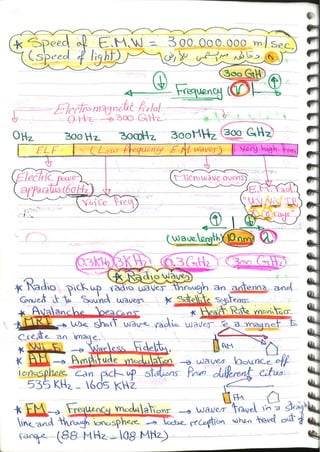 * Speed of E.M.W = 300.000.000 m/sec
(speed of light)
300 GH
Frequency
Electromagnetic field
0 Hz → 300 GHz
0Hz 300Hz 3000Hz 300MHz 300 GHz
ELF (Low frequency E.M waves) very high
Electric power
apparatus (60Hz)
Voice Freq
Microwave ovens
E.M. rad
(wave length) 10nm λ
0.3KHz 3KHz 0.3GHz 300 GHz
* Radio waves
* Radio pick up radio waves through an antenna and
convert it to Sound waves * Satellite systems
* Avalanche beacons * Heart Rate monitors
* MRI → use short wave radio waves & a magnet to
create an image.
* Wi.Fi → Wireless Fidelity
* AM → Amplitude modulation → waves bounce off
AM
ionosphere can pick up stations from different cities
535 KHz - 1605 KHz
* FM → Frequency modulations → waves travel in a straight
FM
line and through ionosphere → loose reception when travel out of
range (88 MHz - 108 MHz)